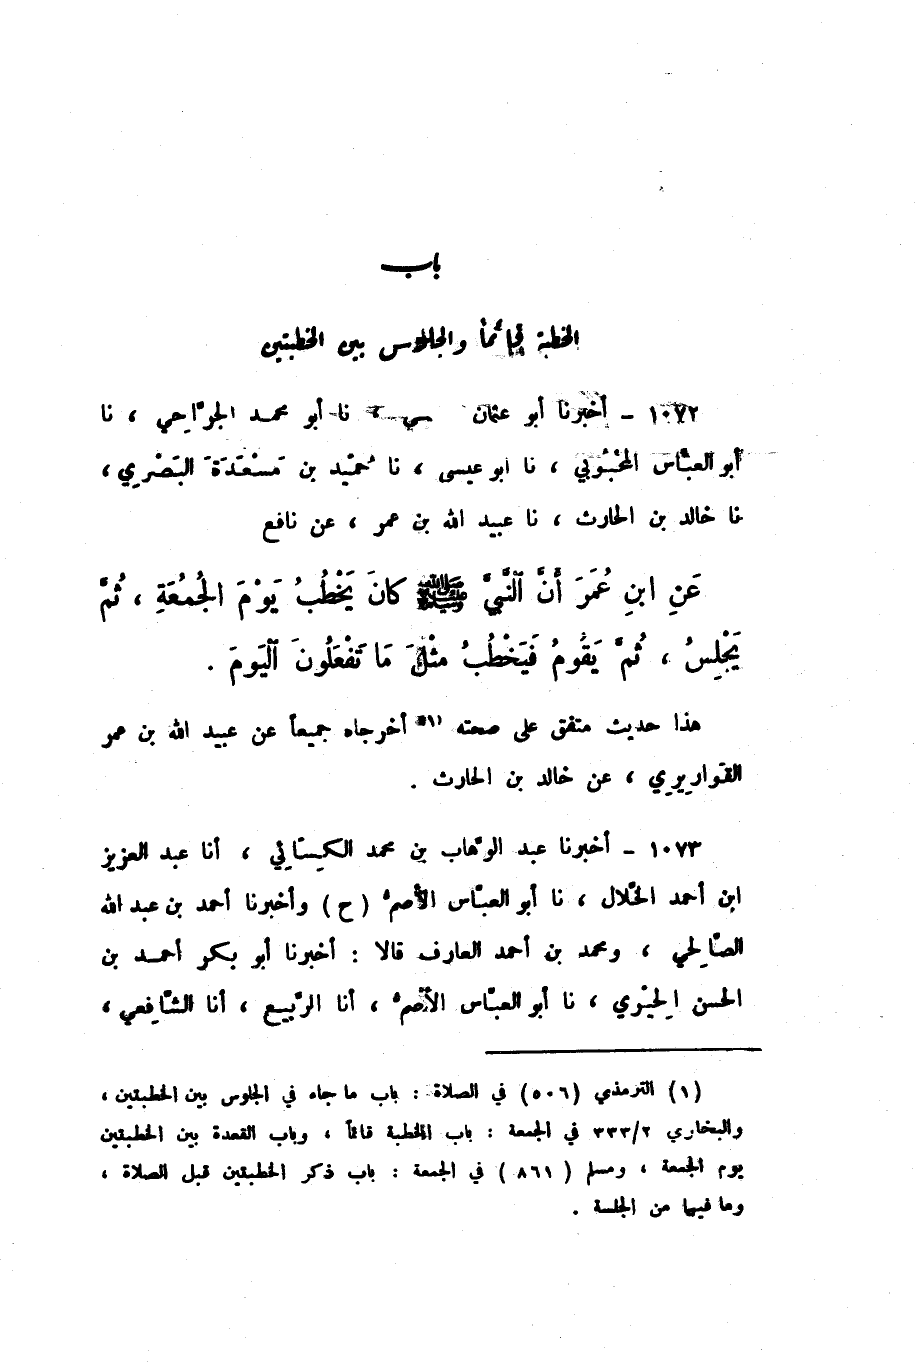 باب
الخطبة قائماً والجلوس بين الخطبتين
١٠٧٢ - أخبرنا أبو عثمان ، نا أبو محمد الجرّاحي ، نا
أبو العبّاس المحْبُوبي ، نا أبو عيسى ، نا حُمَيْد بن مَسْعَدَةَ البَصْرِي ،
نا خالد بن الحارث ، نا عبيد الله بن عمر ، عن نافع
عَنِ ابنِ عُمَرَ أَنَّ ٱلنَّبيَّ ﷺ كانَ يَخْطُبُ يَوْمَ الجُمعَةِ ، ثُمَّ
يَجْلِسُ ، ثُمَّ يَقُومُ فَيَخْطُبُ مثْلَ مَا تَفْعَلُونَ ٱلْيَومَ .
هذا حديث متفق على صحته (١) أخرجاه جميعاً عن عبيد الله بن عمر
القوارِيرِي ، عن خالد بن الحارث .
١٠٧٣ - أخبرنا عبد الوهّاب بن محمد الكِسَائي ، أنا عبد العزيز
ابن أحمد الخلّال ، نا أبو العبّاس الأصمُّ (ح) وأخبرنا أحمد بن عبد الله
الصّالحِي ، ومحمد بن أحمد العارف قالا : أخبرنا أبو بكر أحمد بن
الحسن الحِيْري ، نا أبو العبّاس الأصمُّ ، أنا الرّبيع ، أنا الشّافِعي ،
(١) الترمذي (٥٠٦) في الصلاة : باب ما جاء في الجلوس بين الخطبتين ،
والبخاري ٢/٣٣٣ في الجمعة : باب الخطبة قائماً ، وباب القعدة بين الخطبتين
يوم الجمعة ، ومسلم (٨٦١) في الجمعة : باب ذكر الخطبتين قبل الصلاة ،
وما فيها من الجلسة .